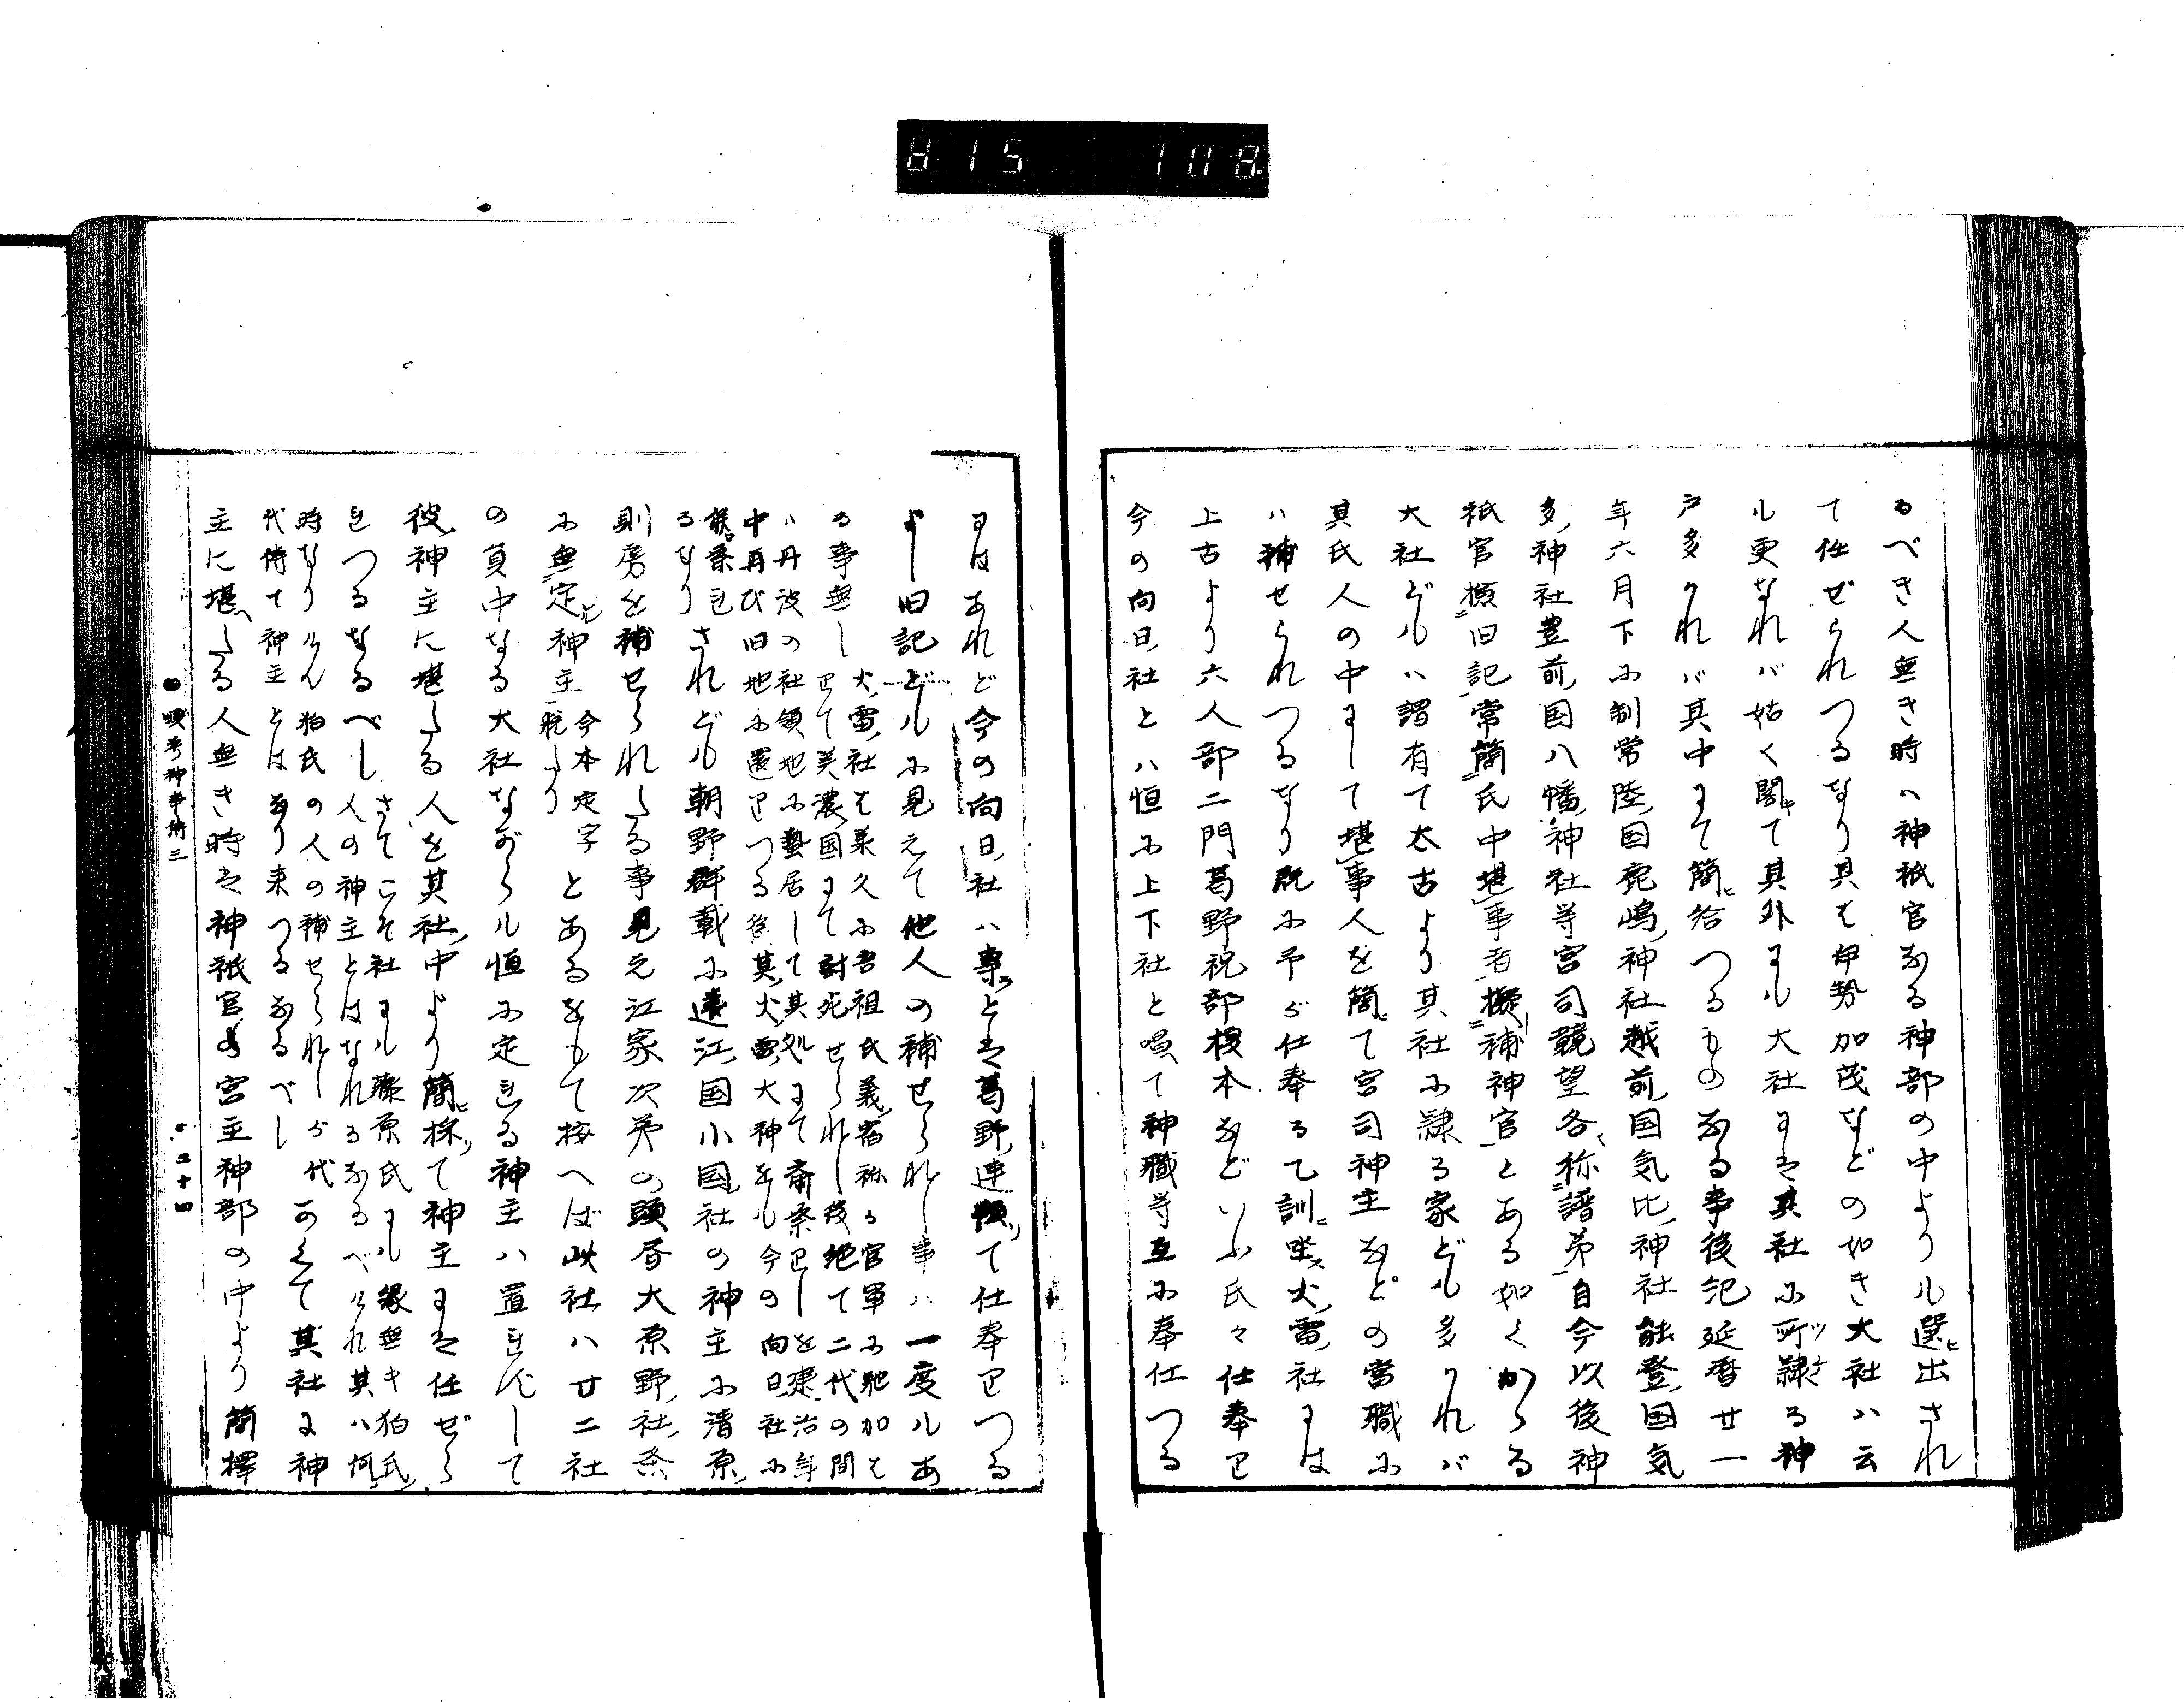 815 108
るべき人無き時ハ神祇官なる神部の中よりル選出され
て任ぜられつるなり其は伊勢加茂などの如き大社ハ云
ル更なれバ姑く閣て其外にル大社には其社に所隷る神
戸多かれバ其中にて簡給つるものなる事後紀延暦廿一
年六月下に制常陸国鹿嶋神社越前国気比神社能登国気
多神社豊前国八幡神社等宮司競望各称譜第自今以後神
祇官検旧記常簡氏中堪事者擬補神官とある如くかゝる
大社どルハ謂有て太古より其社に隷る家どル多かれバ
其氏人の中にして堪事人を簡て宮司神主などの當職に
ハ補せられつるなり既に予が仕奉る乙訓坐火雷社には
上古より六人部二門葛野祝部榎本などいふ氏々仕奉り
今の向日社とハ恒に上下社と唄て神職等互に奉仕つる
にはあれど今の向日社ハ専とは葛野連類て仕奉りつる
よし旧記どルに見えて他人の補せられし事ハ一度ルあ
る事無し火雷社は承久に吾祖氏義宿祢る官軍に馳加は
りて美濃国にて討死せられし後絶て二代の間
ハ丹波の社領地に蟄居して其処にて斎祭りしを建治年
中再び旧地に還りつる後其火雷大神をル今の向日社に
るなりされどル朝野群載に遠江国小国社の神主に清原
則房を補せられたる事見え江家次第の頭昏大原野社祭
に無定神主今本定字
脱たりとあるをもて按へば此社ハ廿二社
の員中なる大社ながらル恒に定まる神主ハ置ずして
彼神主に堪たる人を其社中より簡採て神主には任ぜら
れつるなるべしさてこそ社にル藤原氏にル縁無キ狛氏
人の神主とはなれるなるべけれ其ハ何
時なりけん狛氏の人の補せられしが代
代侍て神主とはなり来つるなるべしかくて其社に神
主に堪たる人無き時は神祇官の宮主神部の中より簡擇
神事 三
二十四